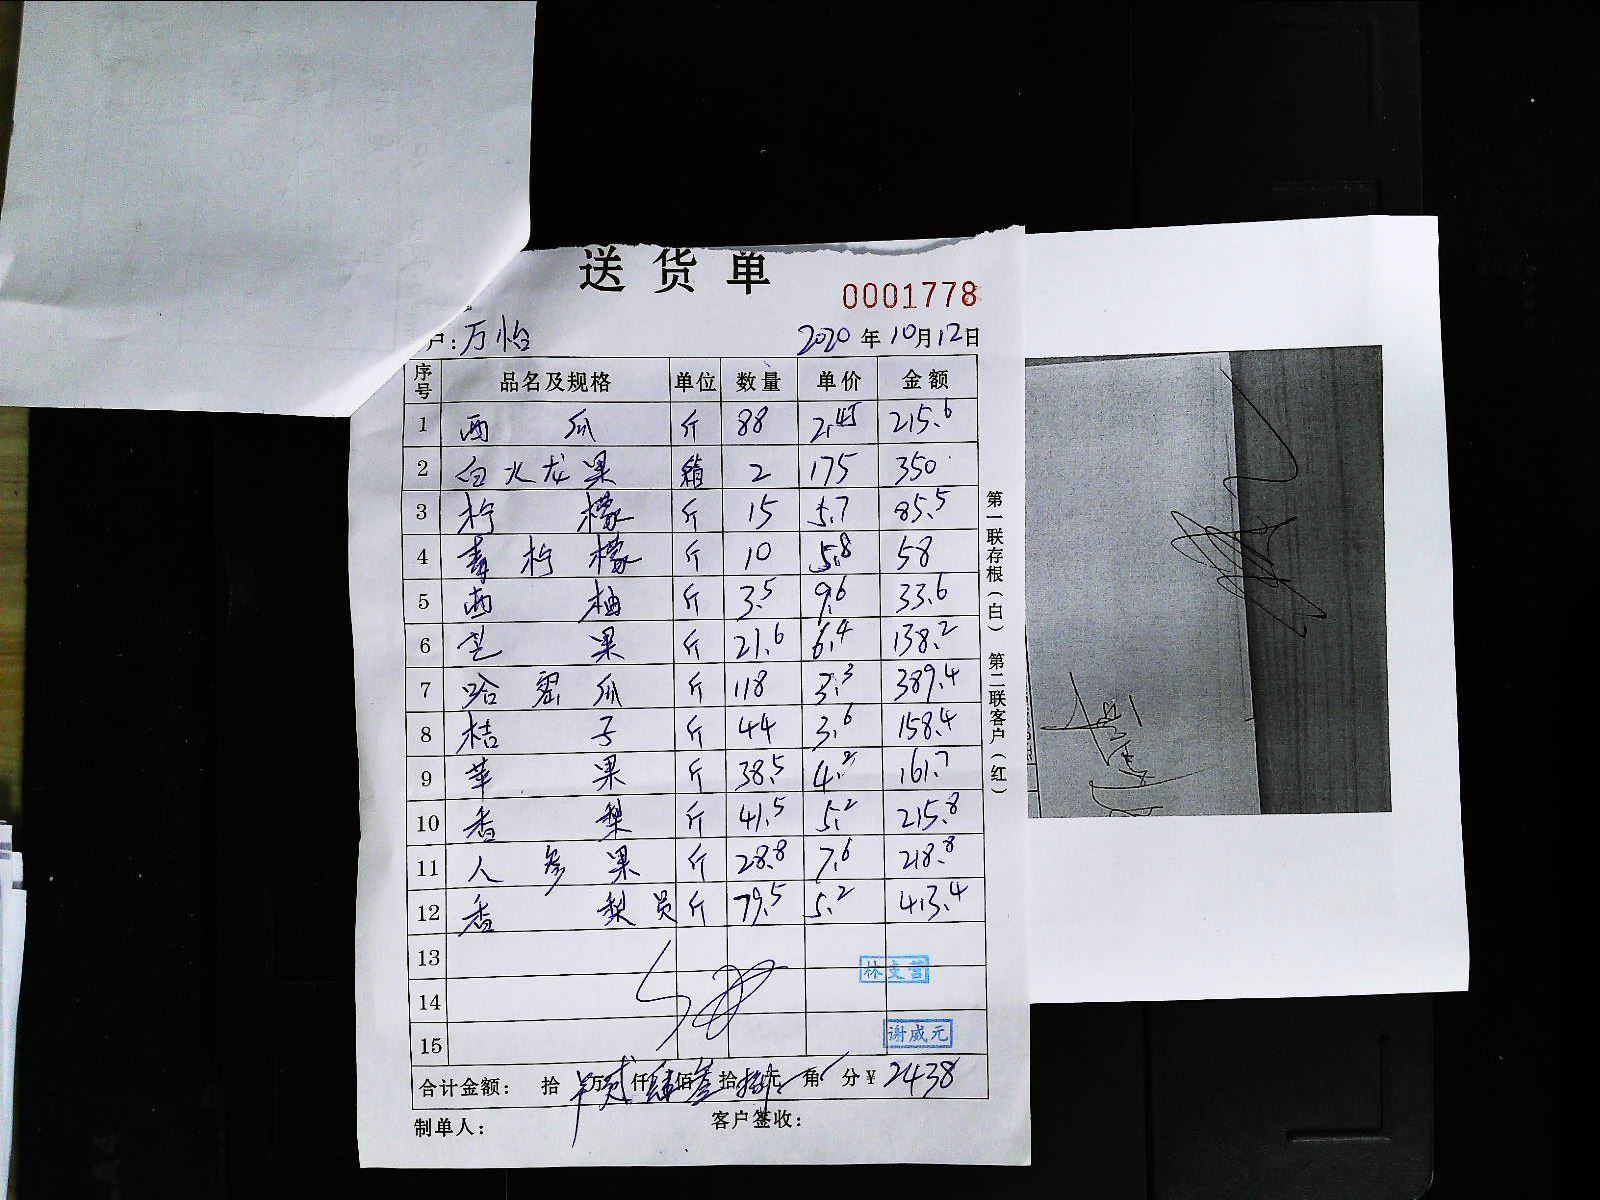 送货单
0001778
户：万怡 2020年10月12日
序号 品名及规格 单位 数量 单价 金额
1 西瓜 斤 88 2.45 215.6
2 白火龙果 箱 2 175 350
3 柠檬 斤 15 5.7 85.5
4 青柠檬 斤 10 5.8 58
5 西柚 斤 3.5 9.6 33.6
6 芒果 斤 21.6 6.4 138.2
7 哈密瓜 斤 118 3.3 389.4
8 桔子 斤 44 3.6 158.4
9 苹果 斤 38.5 4.2 161.7
10 香梨 斤 41.5 5.2 215.8
11 人参果 斤 28.8 7.6 218.8
12 香梨员 斤 79.5 5.2 413.4
13
林支营
14
15
谢威元
合计金额： 拾 万贰仟肆佰叁拾捌元 角 分¥2438
制单人： 客户签收：
第一联存根（白） 第二联客户（红）